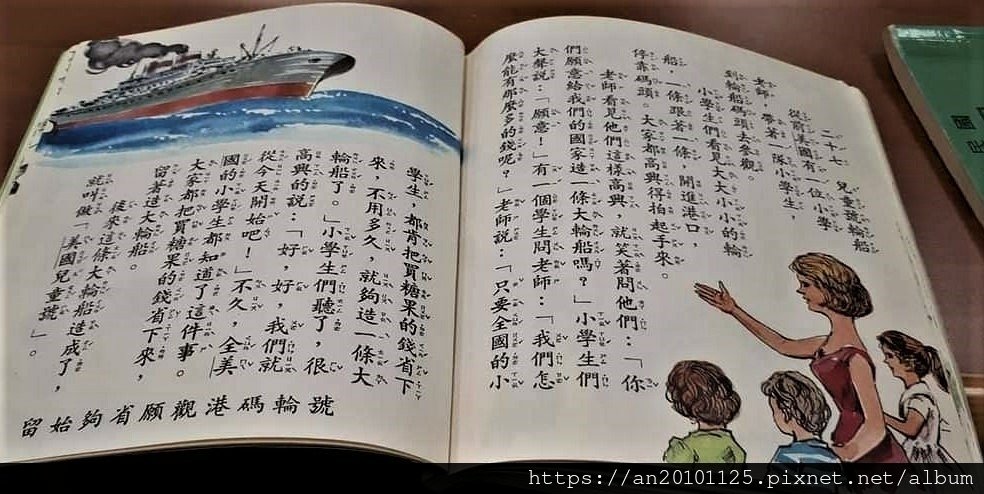 二十七　兒童號輪船
從前美國有一位小學
老師，帶著一隊小學生，
到輪船碼頭去參觀。
小學生們看見大大小小的輪
船，一條跟著一條，開進港口，
停靠碼頭。大家都高興得拍起手來。
老師看見他們這樣高興，就笑著問他們：「你
們願意給我們的國家造一條大輪船嗎？」小學生們
大聲說：「願意！」有一個學生問老師：「我們怎
麼能有那麼多的錢呢？」老師說：「只要全國的小
學生，都肯把買糖果的錢省下
來，不用多久，就夠造一條大
輪船了。」小學生們聽了，很
高興的說：「好，好，我們就
從今天開始吧！」不久，全美
國的小學生都知道了這件事。
大家都把買糖果的錢省下來，
留著造大輪船。
後來這條大輪船造成了，
就叫做「美國兒童號」。
號輪碼港觀願省夠始留
https://an20101125.pixnet.net/album